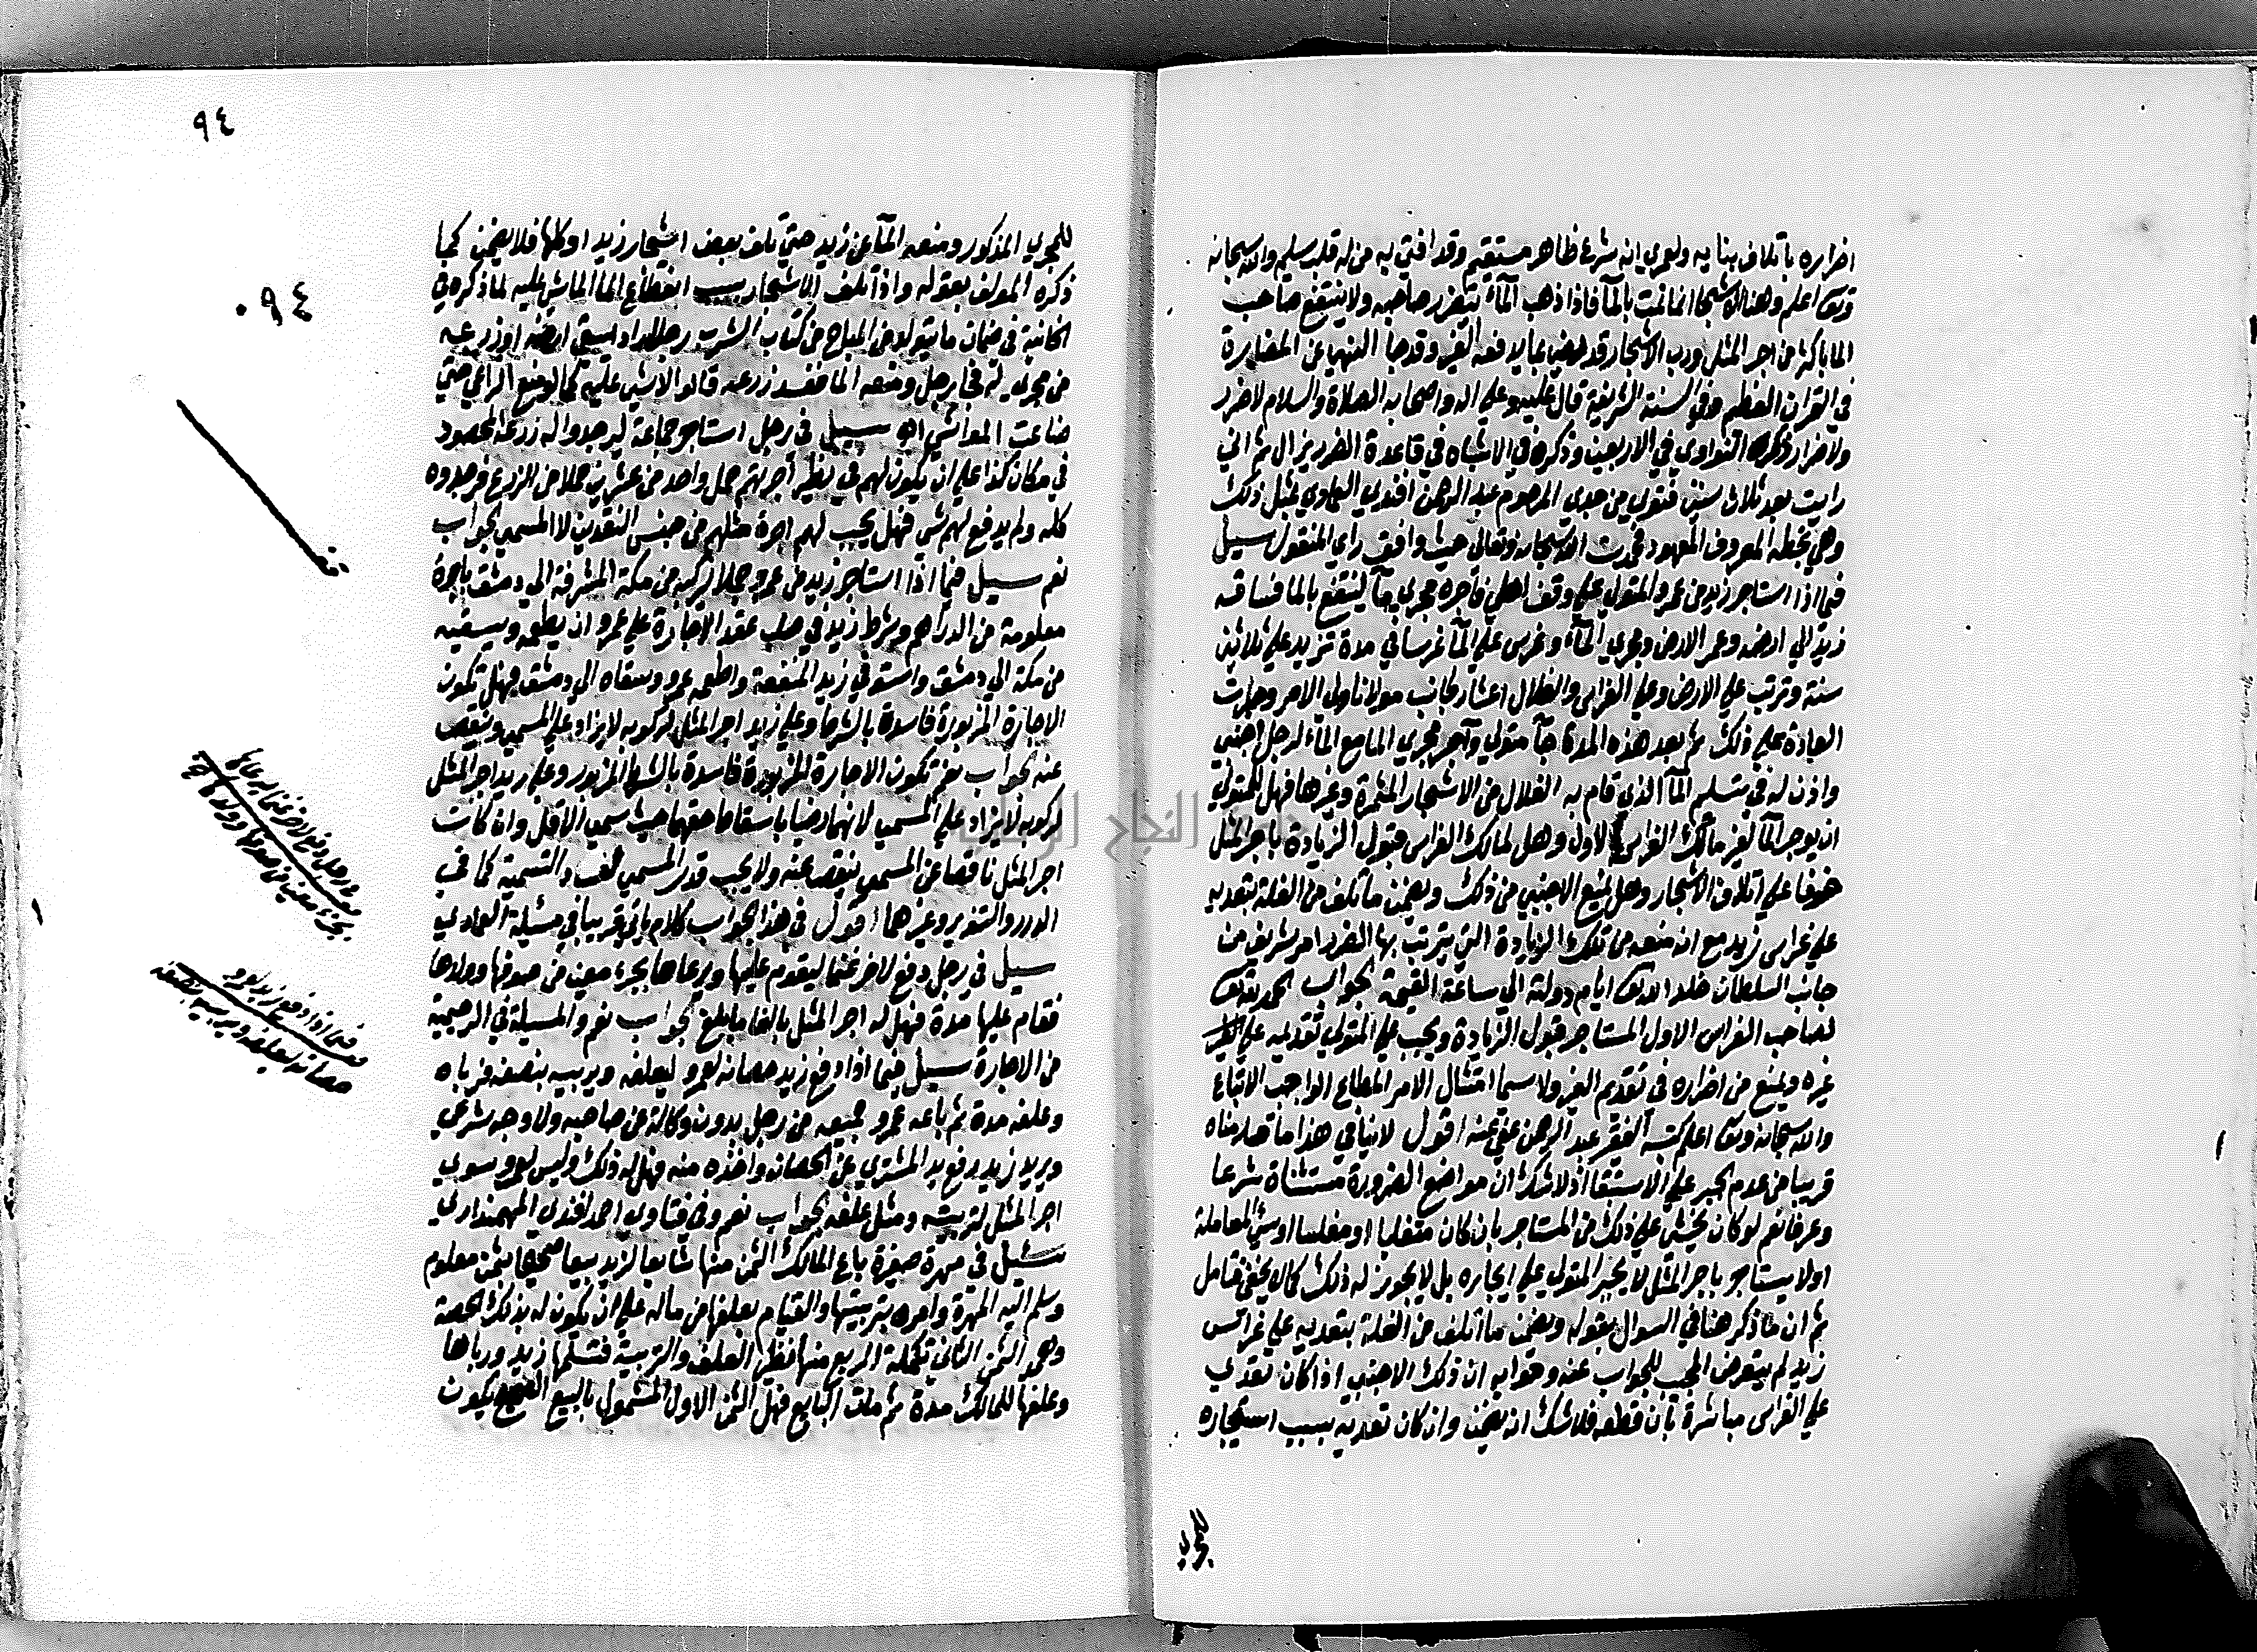 اضراره باتلاف بنايه ولعمري انه شرع ظاهر مستقيم وقد افتي به من له قلب سليم والله سبحانه
وتعالى اعلم وهنا الاشجار انما نمت بالمآ فاذا ذهب المآء تتضرر صاحبه ولا ينتفع صاحب
الما باكثر من اجر المثل ورب الاشجار قد رضي بما لا فعه الغير وقد جا النهي عن المضاررة
في القران العظيم وفي السنة الشريفة قال عليه وعلى اله واصحابه الصلاة والسلام لا ضرر
ولا ضرار ذكره النواوي في الاربعين وذكره في الاشباه في قاعدة الضرر يزال ثم اني
رايت بعد ثلاث سنين فتوى من جدى المرحوم عبد الرحمن افندي العمادي بمثل ذلك
وهي بخطه المعروف المعهود فحمدت الله سبحانه وتعالى حيث وافق راي المنقول سيل
فيما اذا استاجر زيد من عمرو المتولي علي وقف اهلي فاجره مجري مآ لينتفع بالما فساقه
زيد الي ارضه وعمر الارض ومجري المآء وغرس علي المآ غرسا في مدة تزيد علي ثلاثين
سنة وترتب علي الارض وعلي الغراس والغلال اعشار لجانب مولانا ولي الامر وجرت
العادة علي ذلك ثم بعد هذه المدة جآ متولي وآجر مجري الما مع المآء لرجل اجنبي
واذن له في تسلم المآ الذي قام به الغلال من الاشجار المثمرة وغيرها فهل للمتولي
ان يوجر المآ لغير مالك الغراس الاول وهل لمالك الغراس قبول الزيادة باجر المثل
خوفا علي اتلاف الاشجار وهل يمنع الاجنبي من ذلك ويضمن ما تلف من الغلة بتعديه
علي غراس زيد مع ان منعه من تلك الزيادة التي يترتب بها الضرر امر شريف من
جانب السلطان خلد الله تعالى ايام دولته الي ساعة القيمة الجواب الحمد لله تعالى
لصاحب الغراس الاول المستاجر قبول الزيادة ويجب علي المتولي تقديمه علي
غيره ويمنع من اضراره في تقديم الغير ولا سيما امتثال الامر المطاع الواجب الاتباع
والله سبحانه وتعالى اعلم كتبه الفقير عبد الرحمن عفي عنه اقول لا ينافي هذا ما قدمناه
قريبا من عدم الجبر علي الاستبقا اذ لا شك ان مواضع الضرورة مستثناة شرعا
وعرفا نعم لو كان يخشي علي ذلك من المستاجر بان كان متغلبا او مفلسا او سيئ المعاملة
او لا يستاجر باجر المثل لا يجبر المتولي علي ايجاره بل لا يجوز له ذلك كما لا يخفي فتامل
ثم ان ما ذكر هنا في السوال بقوله ويضمن ما اتلف من الغلة بتعديه علي غراس
زيد لم يتعرض المجيب للجواب عنه وجوابه ان ذلك الاجنبي اذا كان تعدي
علي الغراس مباشرة بان قطعه فلا شك انه يضمن وان كان تعديه بسبب استيجاره
٩٤
٠٩٤
للمجري المذكور ومنعه المآ عن زيد حتي تلف بعض اشجار زيد او كلها فلا يضمن كما
ذكره المولف بقوله واذا تلف الاشجار بسبب انقطاع الما لا شي عليه لما ذكره في
الخانية في ضمان ما يتولد من المباح من كتاب الشرب رجل اراد سقي ارضه او زرعه
من مجري له فجا رجل ومنعه الما ففسد زرعه قالوا لا شي عليه كما لو منع الراعي حتي
ضاعت المواشي اه سيل في رجل استاجر جماعة ليرجدوا له زرعه المحصود
في مكان كذا علي ان يكون لهم في نظير اجرتهم حمل واحد من عشرين حملا من الزرع فرجدوه
كله ولم يدفع لهم شي فهل يجب لهم اجرة مثلهم من جنس النقدين لا المسمي الجواب
نعم سيل فيما اذا استاجر زيد من عمرو جملا ليركبه من مكة المشرفة الي دمشق باجرة
معلومة من الدراهم وشرط زيد في صلب عقد الاجارة علي عمرو ان يطعمه ويسقيه
من مكة الي دمشق واستوفي زيد المنفعة واطعمه عمرو وسقاه الي دمشق فهل تكون
الاجارة المزبورة فاسدة بالشرط وعلي زيد اجر المثل لركوبه لا يزاد علي المسمي وينقص
عنه الجواب نعم تكون الاجارة المزبورة فاسدة بالشرط المزبور وعلي زيد اجر المثل
لركوبه لا يزاد علي المسمي لانهما رضيا باسقاط حقهما حيث سمي الاقل وان كانت
اجر المثل ناقصا عن المسمي ينقص عنه ولا يجب قدر المسمي لفساد التسمية كما في
الدرر والتنوير وغيرهما اقول في هذا الجواب كلام ياتي قريبا في مسئلة العمادي
سيل في رجل دفع لاخر غنما ليقوم عليها ويرعاها بجزء معين من صوفها واولادها
فقام عليها مدة فهل له اجر المثل بالغا ما بلغ الجواب نعم والمسيلة في الرحيمية
من الاجارة سيل فيما اذا دفع زيد حصانه لعمرو ليعلفه ويربيه بنصفه فرباه
وعلفه مدة ثم باعه عمرو جميعه من رجل بدون وكالة من صاحبه ولا وجه شرعي
ويريد زيد رفع يد المشتري عن الحصان واخذه منه فهل له ذلك وليس لعمرو سوي
اجر المثل لتربيته ومثل علفه الجواب نعم وفي فتاوي احمد افندي المهمنداري
سئل في مهرة صغيرة باع المالك الثمن منها شايعا لزيد بيعا صحيحا بثمن معلوم
وسلم اليه المهرة وامره بتربيتها والقيام بعلفها من ماله علي ان يكون له بذلك حصة
وهي الثمن الثاني تكملة الربع منها نظير العلف والتربية فتسلمها زيد ورباها
وعلفها للمالك مدة ثم مات البايع فهل الثمن الاول المشمول بالبيع الصحيح يكون
رجل دفع لاخر غنما ليرعاها
بجزء معين من صوفها واولادها
فيما اذا دفع زيد لعمرو
حصانه ليعلفه ويربيه بنصفه